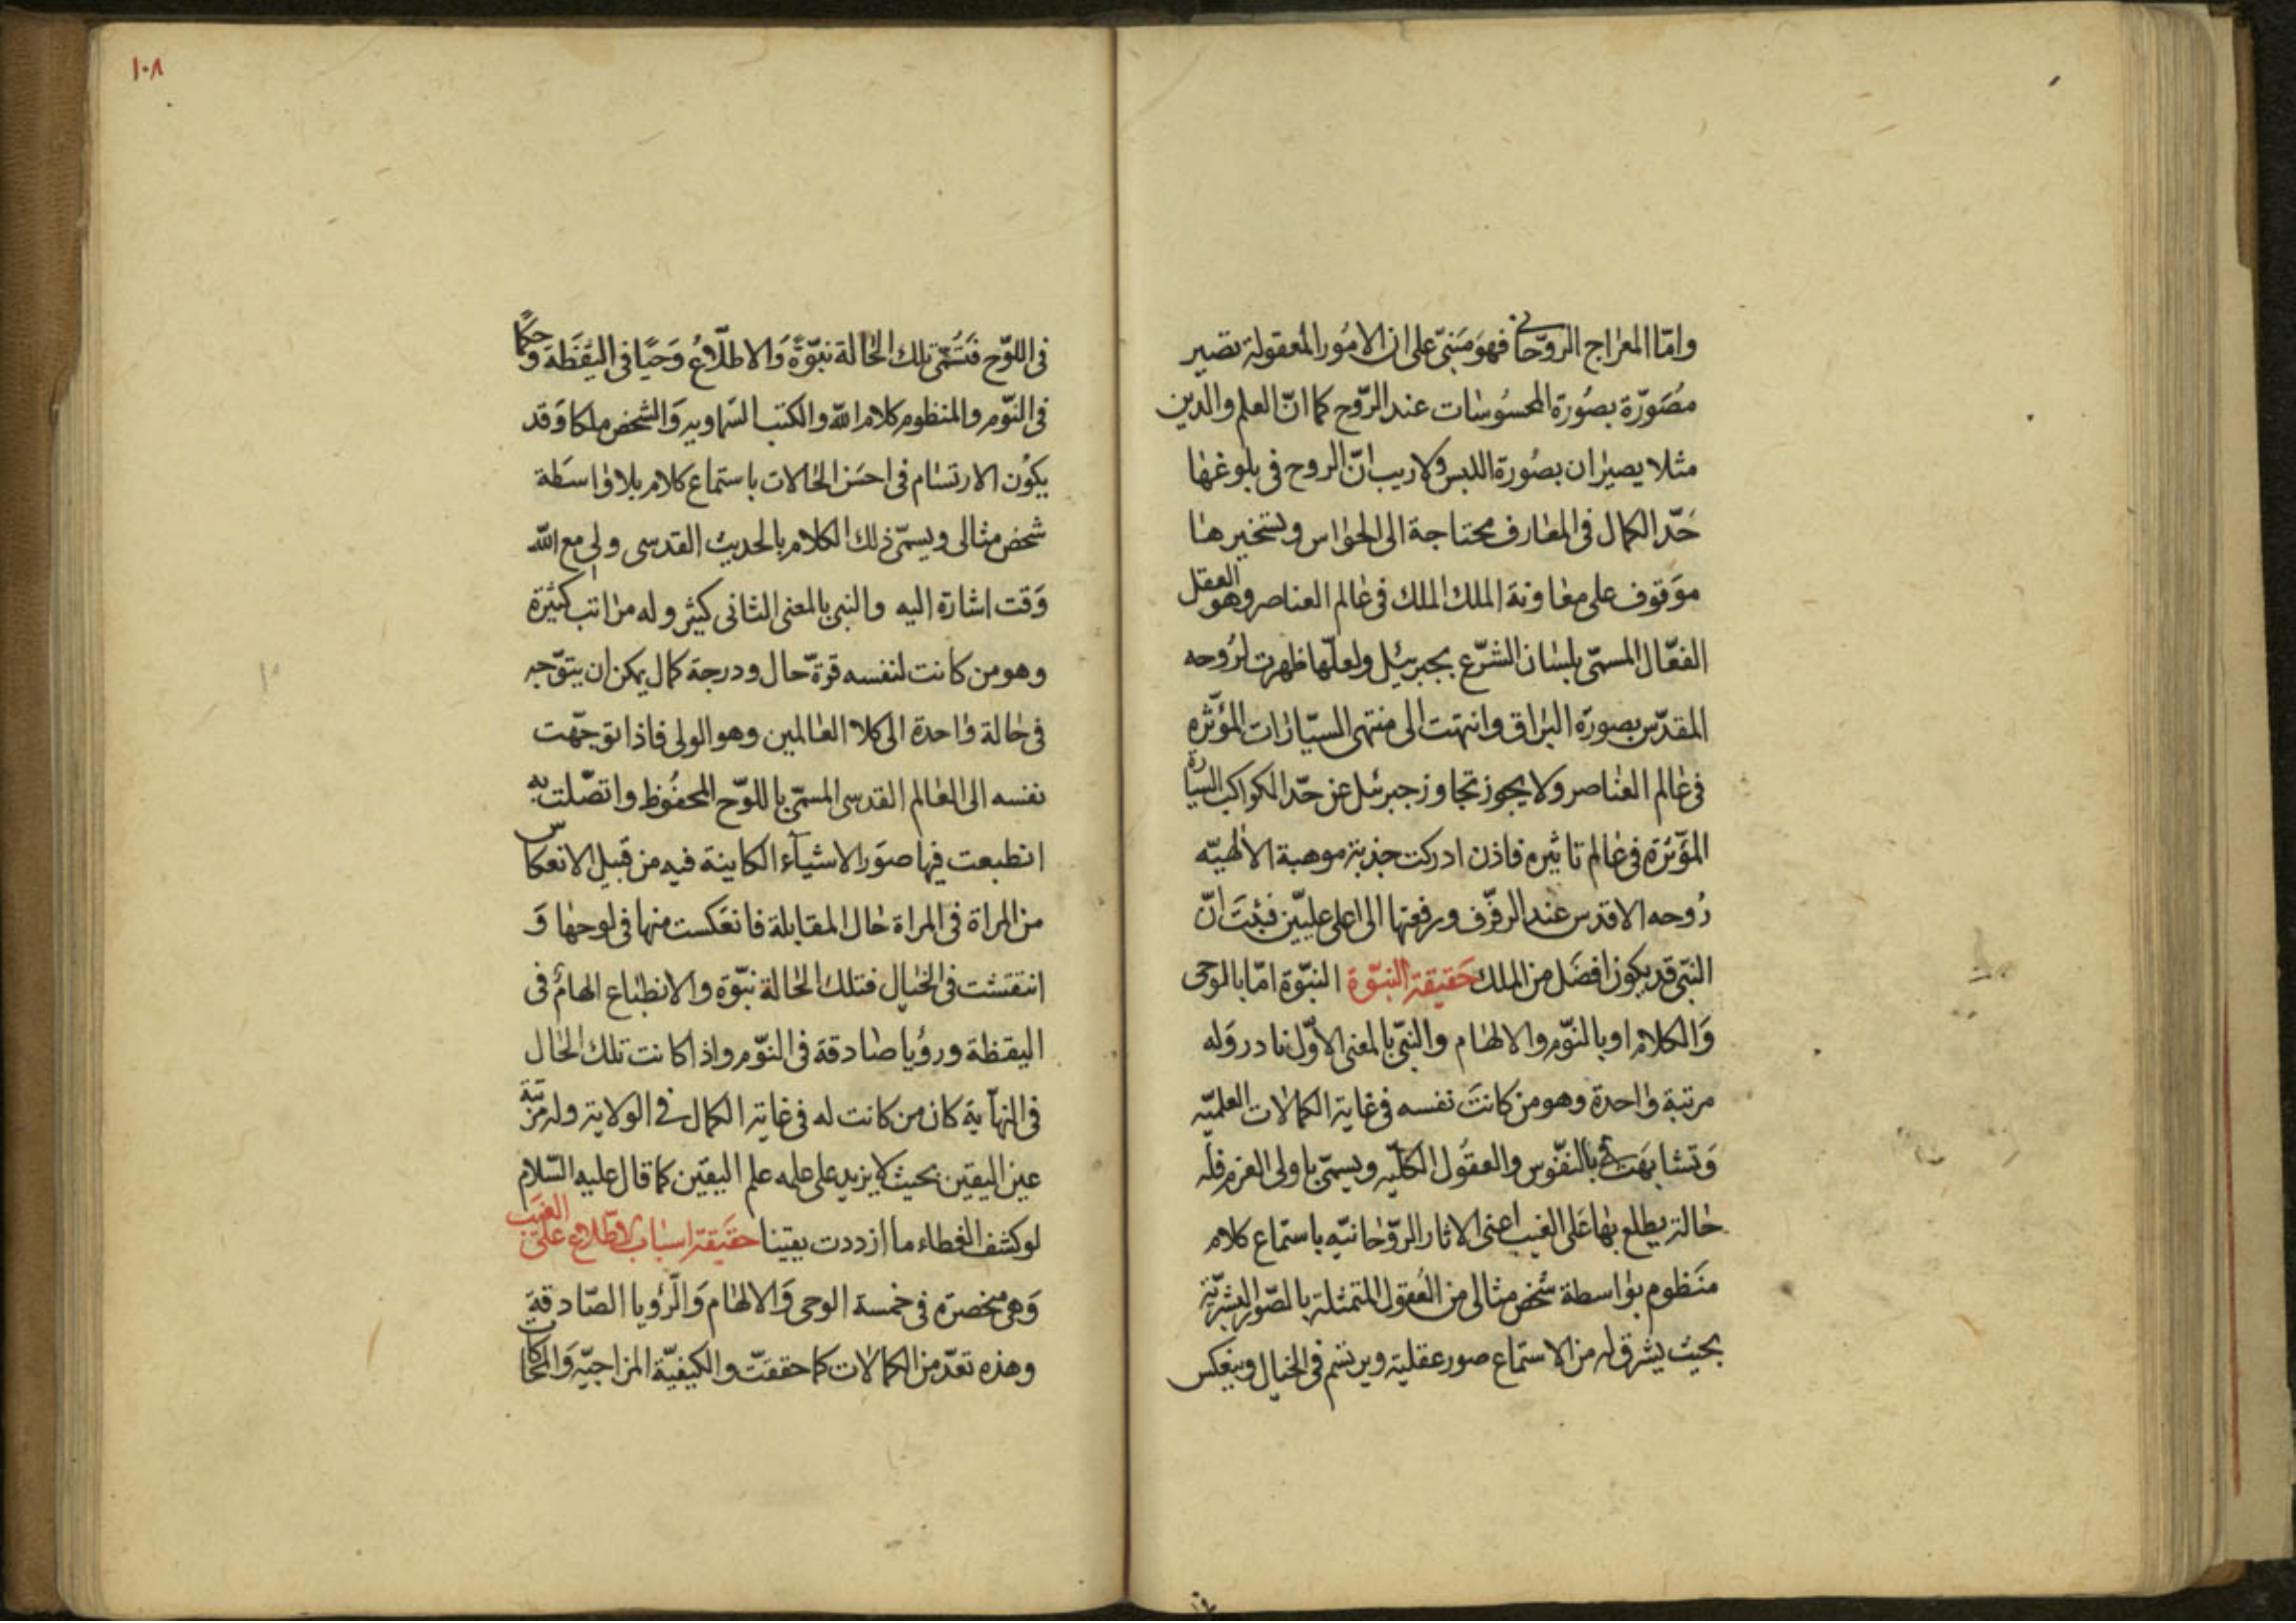 واما المعراج الروحانى فهو مبنى على ان الامور المعقولة تصير
مصورة بصورة المحسوسات عند الروح كما ان العلم والدين
مثلا يصيران بصورة اللبس ولا ريب ان الروح فى بلوغها
حد الكمال فى المعارف محتاجة الى الحواس وتسخيرها
موقوف على معاونة الملك الملك فى عالم العناصر وهو العقل
الفعال المسمى بلسان الشرع بجبرئيل ولعلها ظهرت لروحه
المقدس بصورة البراق وانتهت الى منتهى السيارات المؤثره
فى عالم العناصر ولا يجوز تجاوز جبرئيل عن حد الكواكب السيارة
المؤثرة فى عالم تاثيره فاذن ادركت جذبة موهبة الالهيه
روحه الاقدس عند الرفرف ورفعتها الى اعلى عليين فثبت ان
النبى قد يكون افضل من الملك حقيقة النبوة النبوة اما بالوحى
والكلام او بالنوم والالهام والنبى بالمعنى الاول نادر وله
مرتبة واحدة وهو من كانت نفسه فى غاية الكمالات العلميه
وتشابهت بالنفوس والعقول الكليه ويسمى باولى العزم فله
حالة يطلع بها على الغيب اعنى الاثار الروحانيه باستماع كلام
منظوم بواسطة شخص مثالى من العقول المتمثلة بالصور البشرية
بحيث يشرق له من الاستماع صور عقلية ويرتسم فى الخيال وينعكس
١٠٨
فى اللوح فتسمى تلك الحالة نبوة والاطلاع وحيا فى اليقظة وحكما
فى النوم والمنظوم كلام الله والكتب السماويه والشخص ملكا وقد
يكون الارتسام فى احسن الحالات باستماع كلام بلا واسطة
شخص مثالى ويسمى ذلك الكلام بالحديث القدسى ولى مع الله
وقت اشارة اليه والنبى بالمعنى الثانى كثير وله مراتب كثيرة
وهو من كانت لنفسه قوة حال ودرجة كمال يمكن ان يتوجه
فى حالة واحدة الى كلا العالمين وهو الولى فاذا توجهت
نفسه الى العالم القدسى المسمى باللوح المحفوظ واتصلت به
انطبعت فيها صور الاشياء الكاينة فيه من قبيل الانعكاس
من المراة فى المراة حال المقابلة فانعكست منها فى لوحها و
انتقشت فى الخيال فتلك الحالة نبوة والانطباع الهام فى
اليقظة ورؤيا صادقة فى النوم واذا كانت تلك الحال
فى النهاية كان من كانت له فى غاية الكمال فى الولاية وله مزية
عين اليقين بحيث لا يزيد على علمه علم اليقين كما قال عليه السلام
لو كشف الغطاء ما ازددت يقينا حقيقة اسباب الاطلاع على الغيب
وهى منحصره فى خمسة الوحى والالهام والرؤيا الصادقة
وهذه تعد من الكمالات كما حققت والكيفية المزاجيه والمحاكات